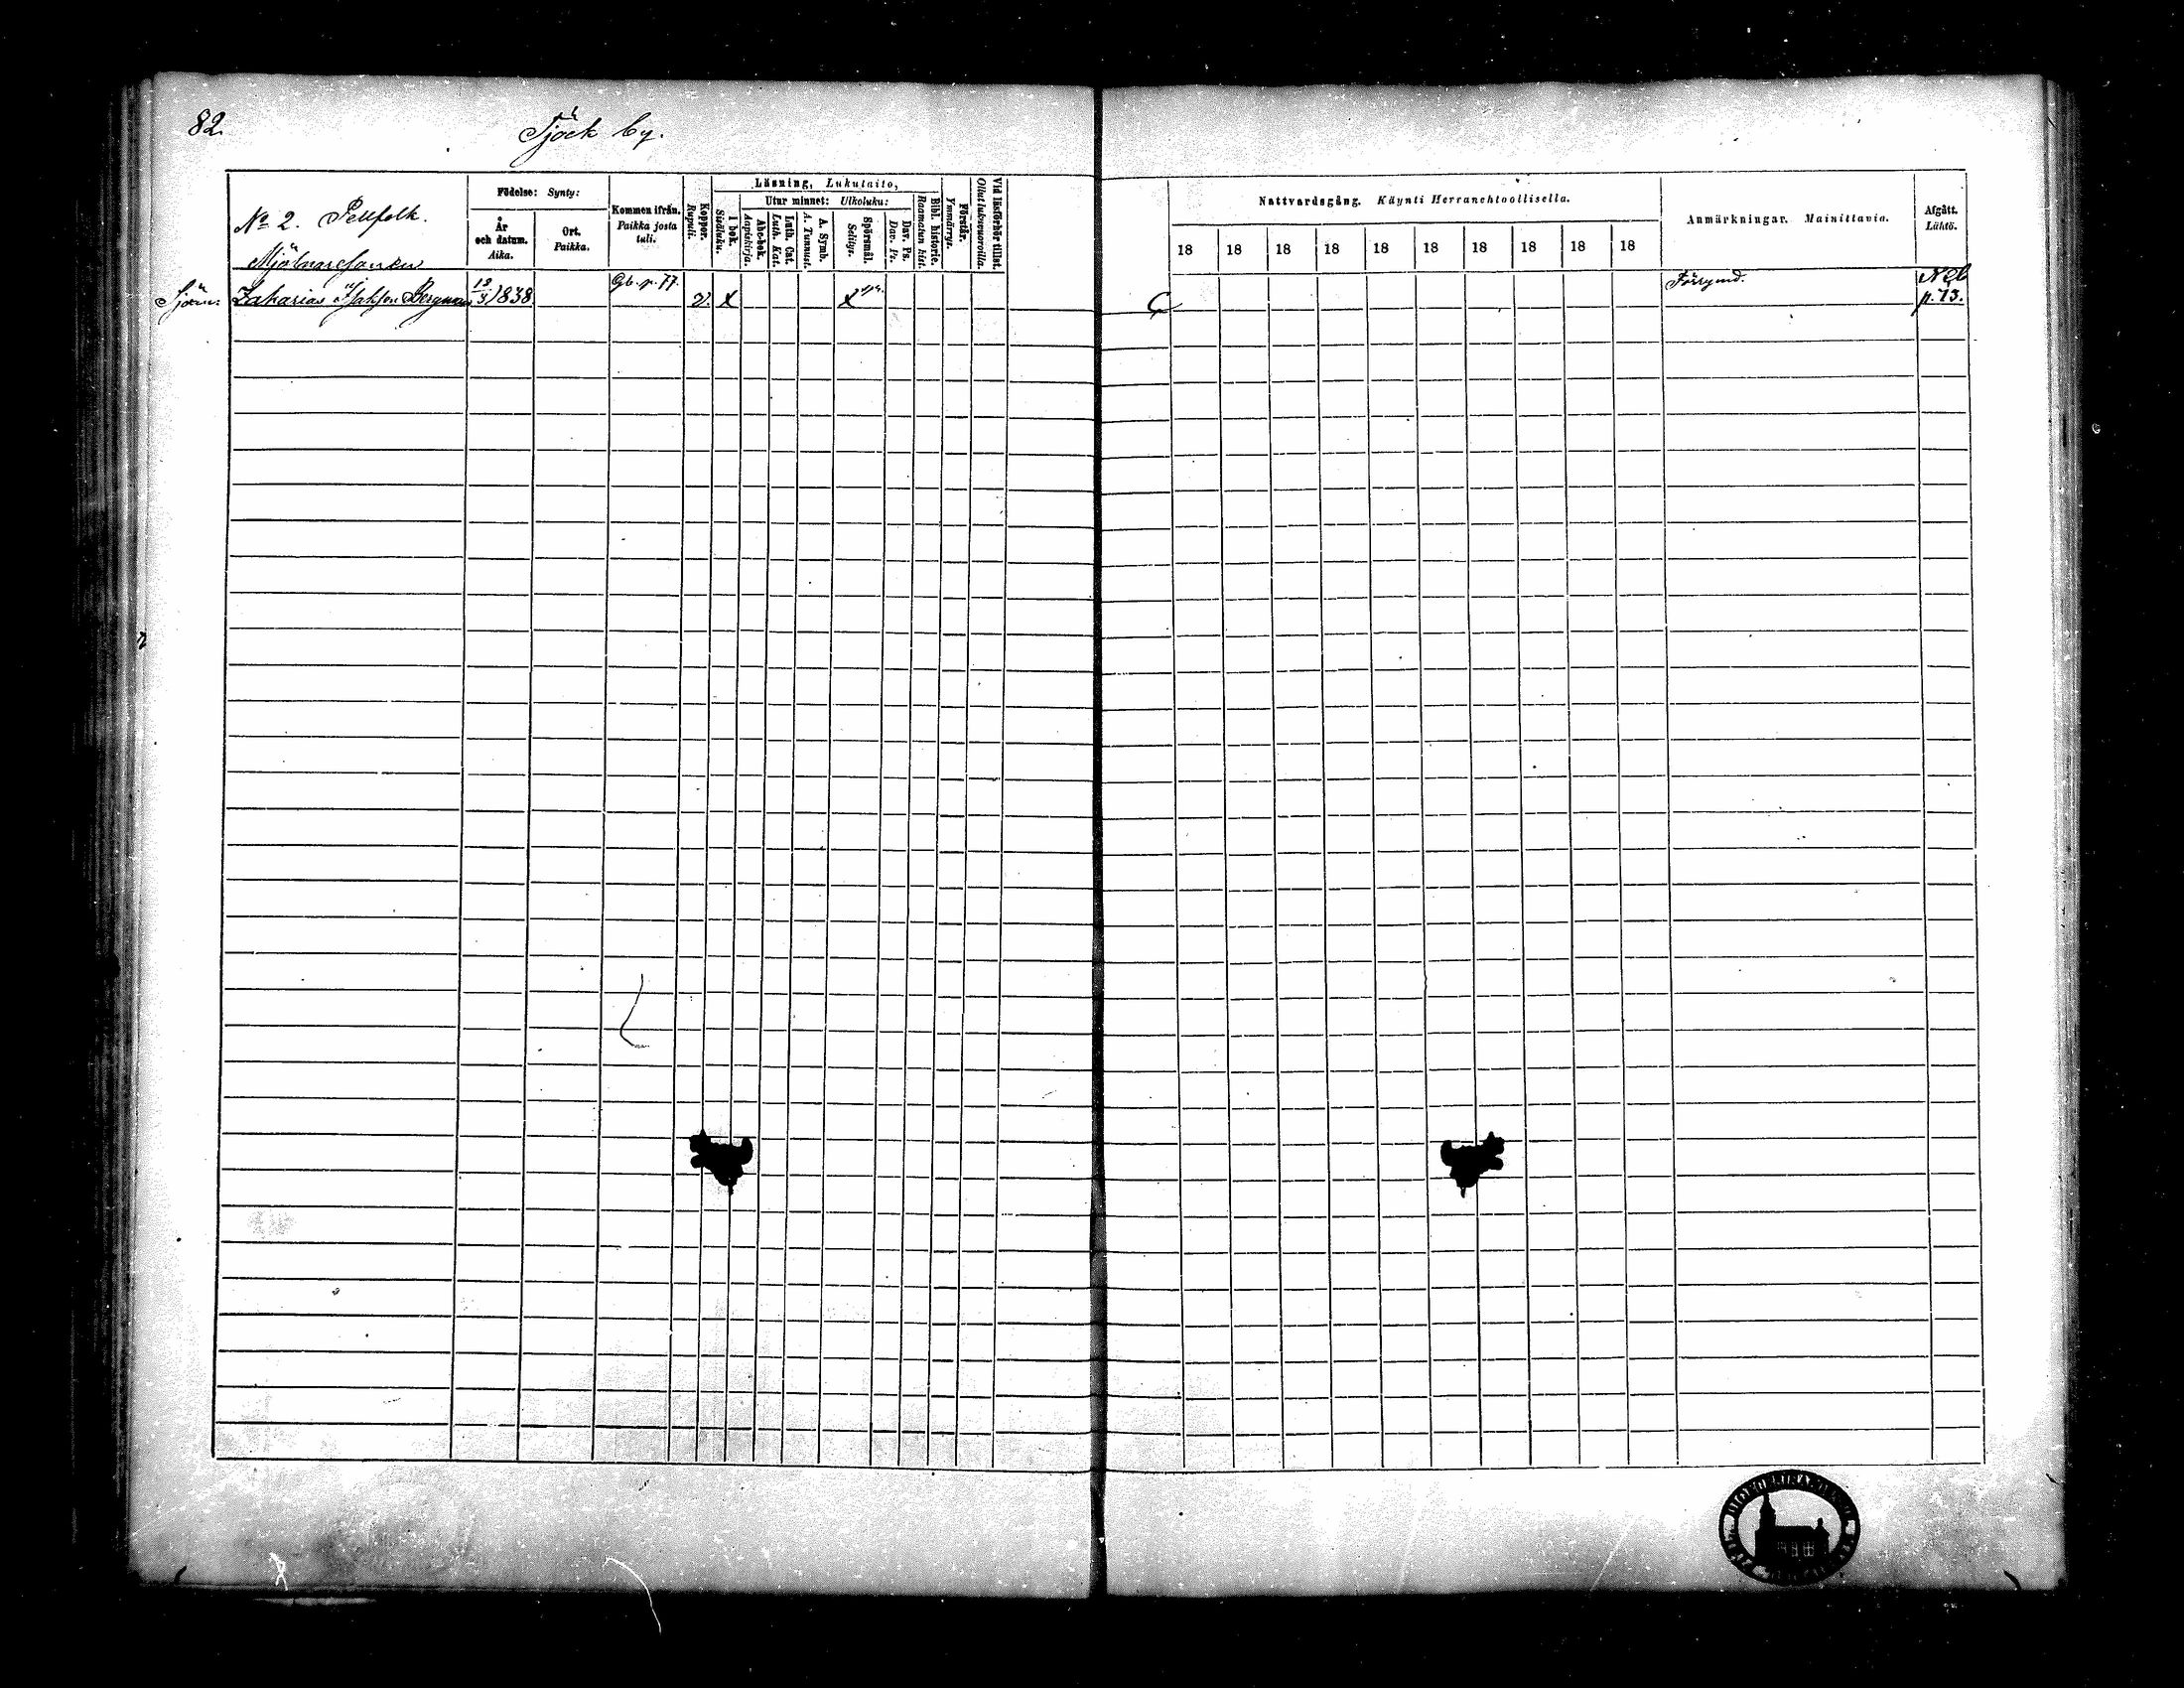 82.
Tjöck by.
No 2. Pellfolk.
Födelse: Synty:
År och datum. Aika.
Ort. Paikka.
Kommen ifrån. Paikka josta tuli.
Koppor. Rupuli.
Läsning, Lukutaito,
I bok. Sisäluku.
Utur minnet: Ulkoluku:
Abc-bok. Aapiskirja.
Luth. Cat. Luth. Kat.
A. Symb. A. Tunnust.
Spörsmål. Selitys.
Dav. Ps. Dav. Ps.
Bibl. historie. Raamatun hist.
Förstår. Ymmärrys.
Vid läsförhör tillst. Ollut lukuvuoroilla.
Nattvardsgång. Käynti Herranehtoollisella.
18 18 18 18 18 18 18 18 18 18
Anmärkningar. Mainittavia.
Afgått. Lähtö.
Mjölnaresonen
Sjöm. Zakarias Isaksson Bergman 12/3 1838 Gb. p. 77. v. x x C Förmynd. N2b
p. 73.